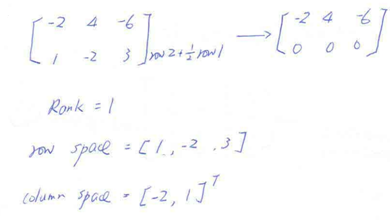 [-2 4 -6
1 -2 3] row2 + 1/2 row1 → [-2 4 -6
0 0 0]
Rank = 1
row space = [1, -2, 3]
column space = [-2, 1]^T